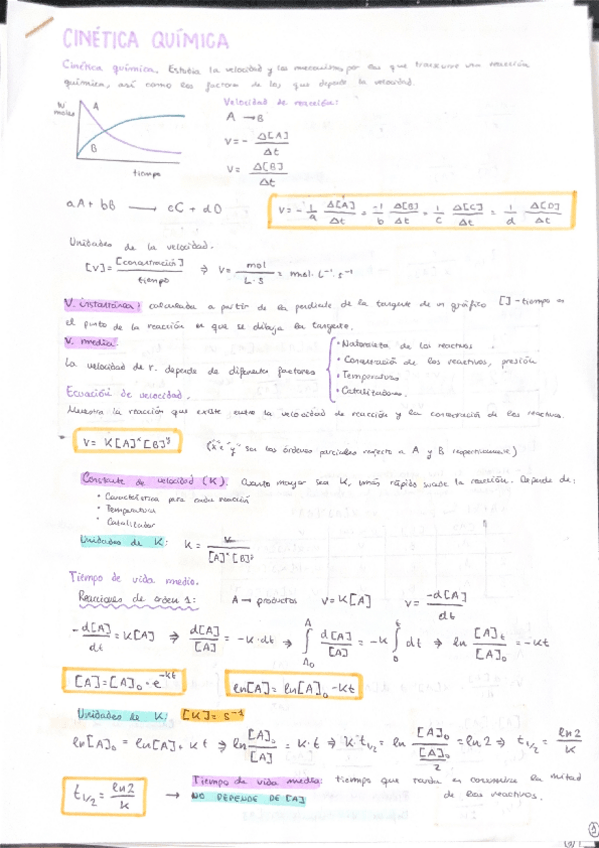 CINÉTICA QUÍMICA
Cinética química. Estudia la velocidad y los mecanismos por los que transcurre una reacción
química, así como los factores de los que depende la velocidad.
Nº moles
A
B
tiempo
Velocidad de reacción:
A → B
V = - Δ[A] / Δt
V = Δ[B] / Δt
aA + bB → cC + dD
V = - 1/a Δ[A]/Δt = -1/b Δ[B]/Δt = 1/c Δ[C]/Δt = 1/d Δ[D]/Δt
Unidades de la velocidad.
[V] = [concentración] / tiempo ⇒ V = mol / L·s = mol·L⁻¹·s⁻¹
V. instantánea: calculada a partir de la pendiente de la tangente de un gráfico [ ]-tiempo en
el punto de la reacción en que se dibuja la tangente.
V. media.
La velocidad de r. depende de diferentes factores
• Naturaleza de los reactivos
• Concentración de los reactivos, presión
• Temperatura
• Catalizadores.
Ecuación de velocidad.
Muestra la reacción que existe entre la velocidad de reacción y la concentración de los reactivos.
V = K[A]ˣ[B]ʸ
("x" e "y" son los órdenes parciales respecto a A y B respectivamente)
Constante de velocidad (K). Cuanto mayor sea K, más rápido sucede la reacción. Depende de:
• Característica para cada reacción
• Temperatura
• Catalizador
Unidades de K: K = V / [A]ˣ[B]ʸ
Tiempo de vida medio.
Reacciones de orden 1: A → productos V = K[A] V = -d[A] / dt
-d[A]/dt = K[A] ⇒ d[A]/[A] = -K·dt ⇒ ∫ A₀ A d[A]/[A] = -K ∫ 0 t dt ⇒ ln [A]t/[A]₀ = -Kt
[A] = [A]₀·e⁻ᴷᵗ
ln[A] = ln[A]₀ - Kt
Unidades de K: [K] = s⁻¹
ln[A]₀ = ln[A] + Kt ⇒ ln [A]₀/[A] = K·t ⇒ K t₁/₂ = ln [A]₀/([A]₀/2) = ln2 ⇒ t₁/₂ = ln2/K
t₁/₂ = ln2/K
→ Tiempo de vida media: tiempo que tarda en consumirse la mitad
NO DEPENDE DE [A] de los reactivos.